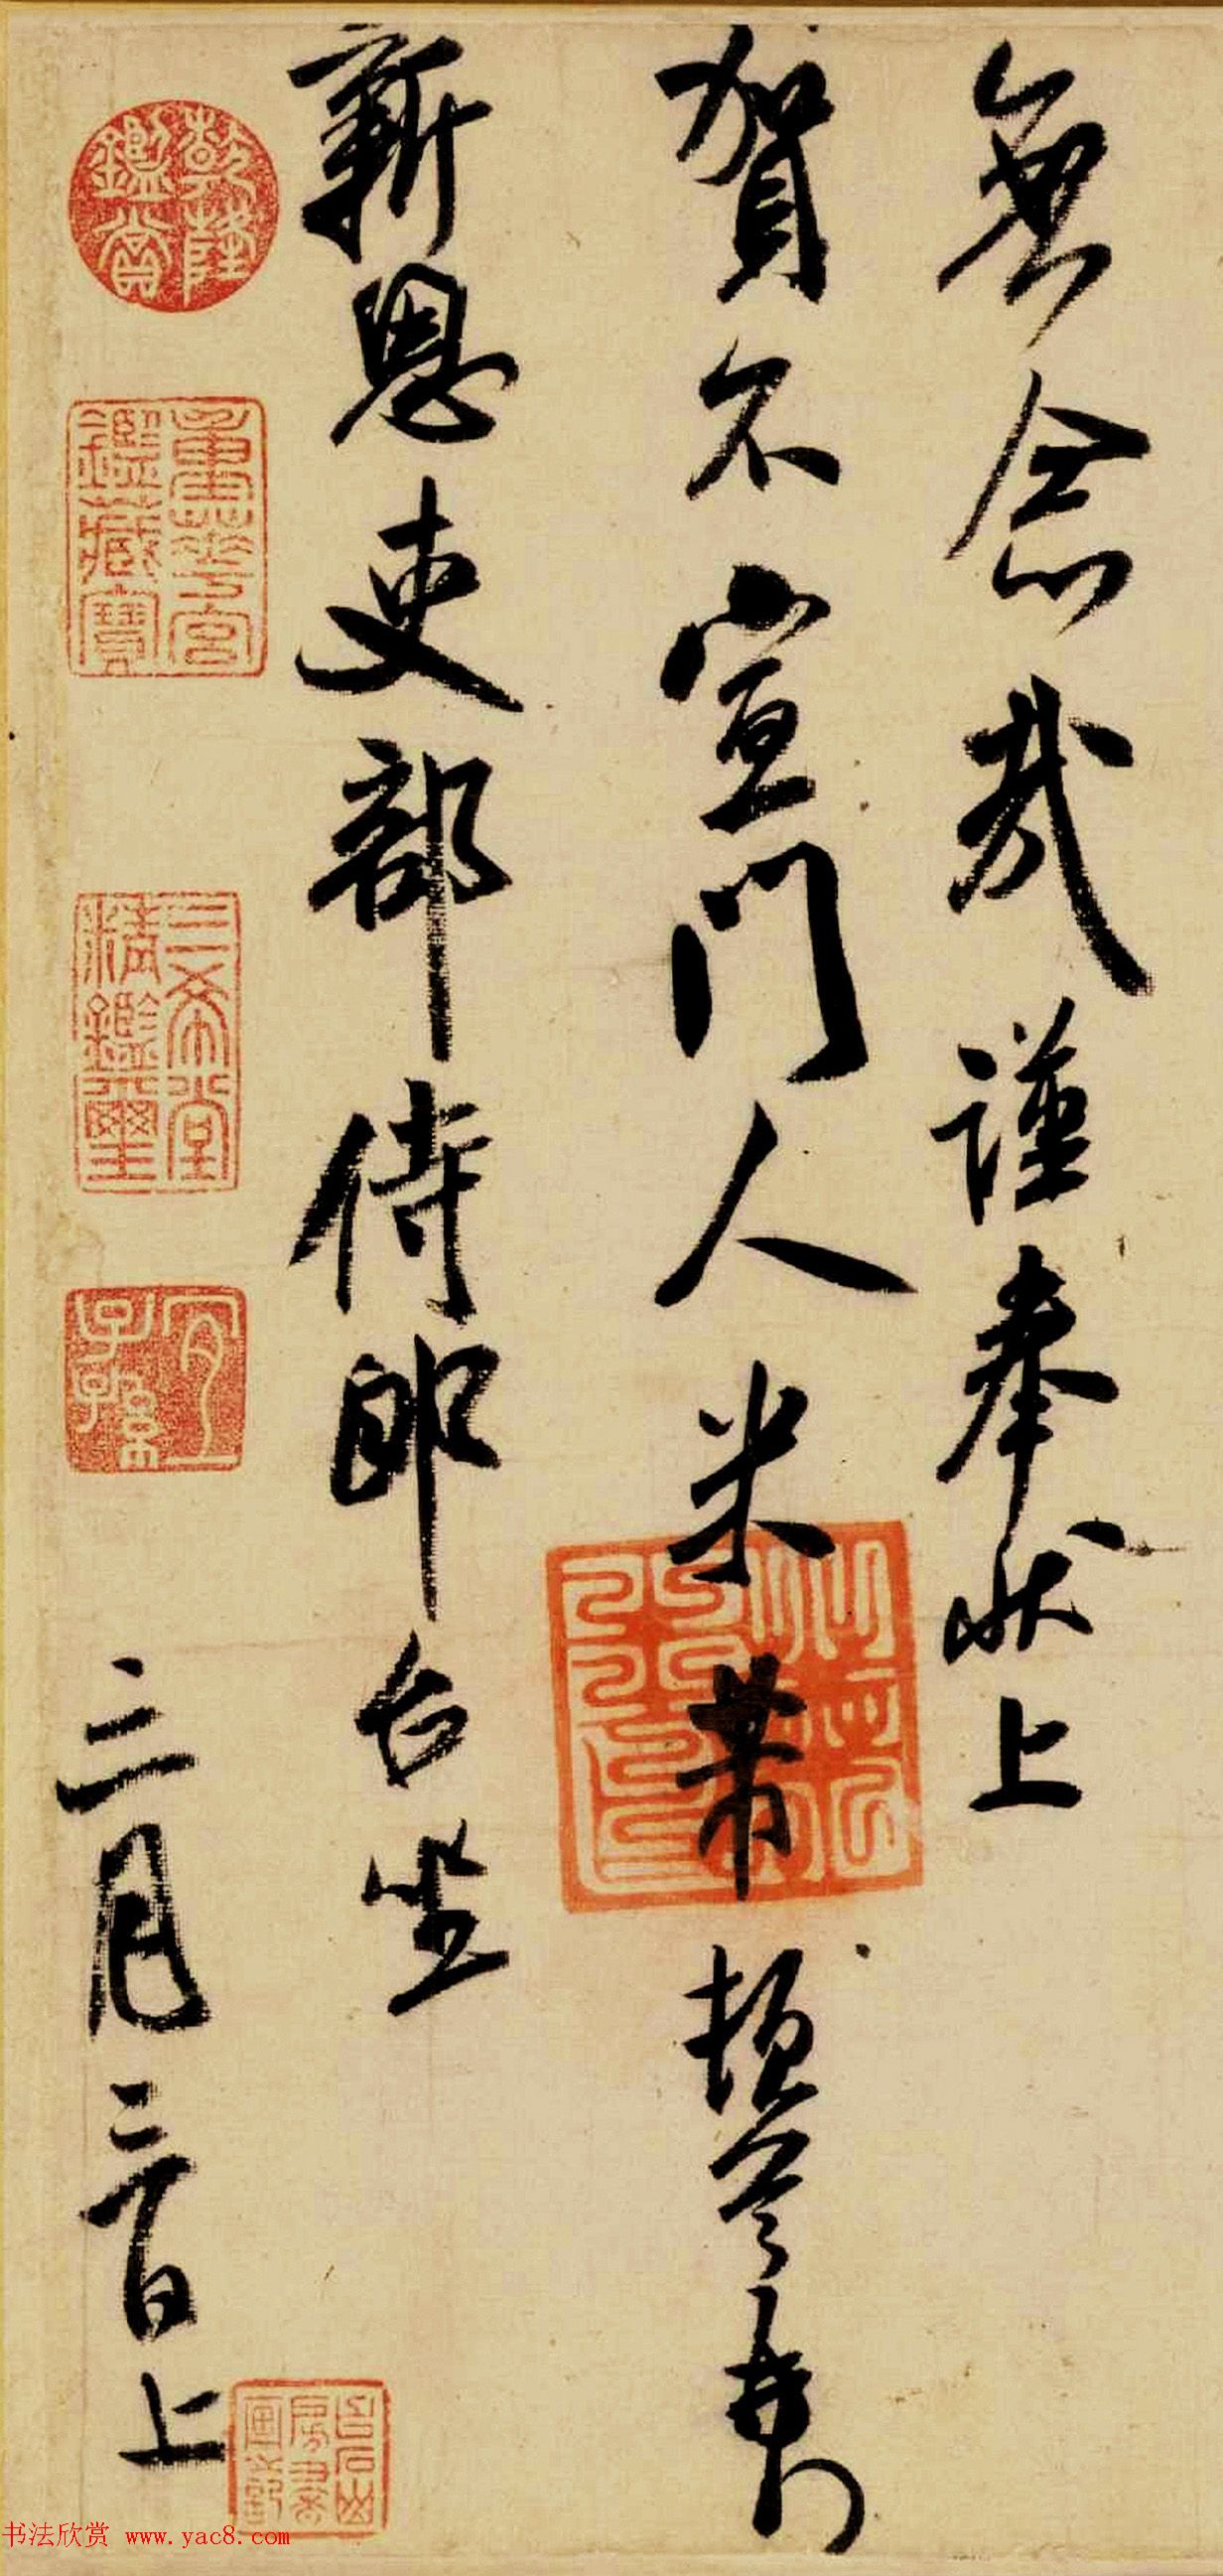 無念哉謹奉狀上
賀不宣門人米芾頓首再拜
新恩吏部侍郎台坐
三月三日上
乾隆鑑賞
重華宮鑑藏寶
三希堂精鑑璽
宜子孫
书法欣赏 www.yac8.com